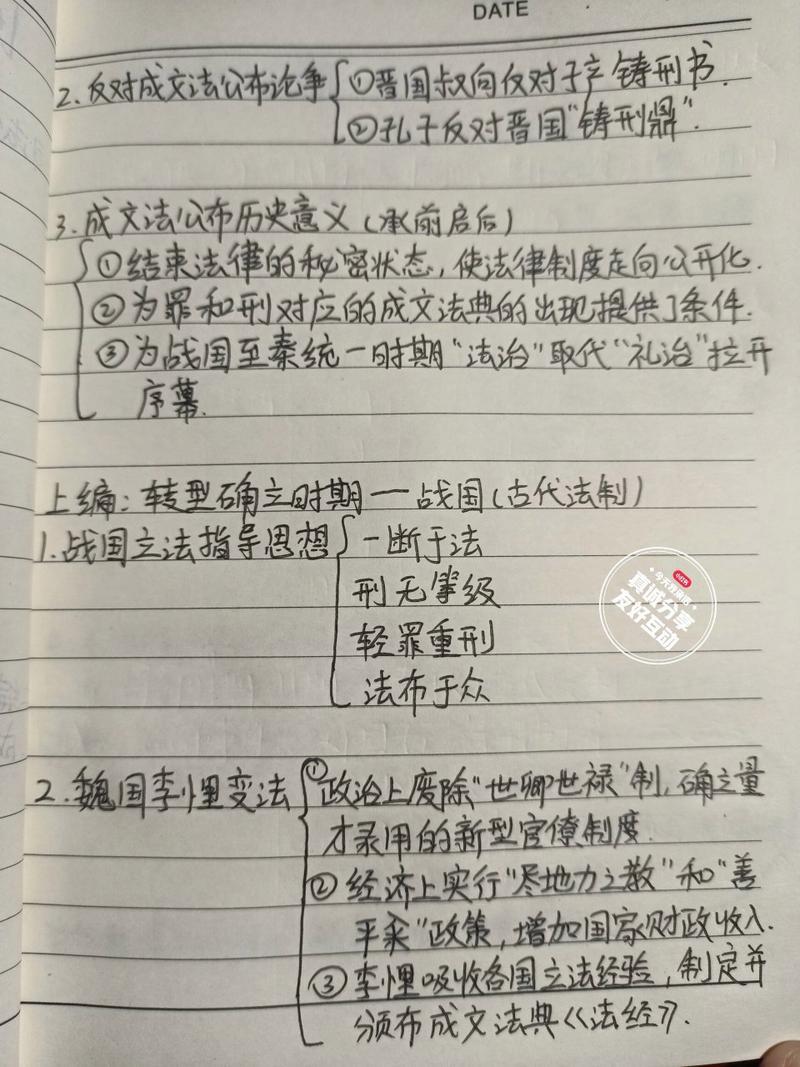 DATE
2.反对成文法公布论争 ①晋国叔向反对子产铸刑书.
②孔子反对晋国"铸刑鼎".
3.成文法公布历史意义(承前启后)
①结束法律的秘密状态,使法律制度走向公开化.
②为罪和刑对应的成文法典的出现提供了条件.
③为战国至秦统一时期"法治"取代"礼治"拉开
序幕.
上编:转型确立时期一战国(古代法制)
1.战国立法指导思想 一断于法
刑无等级
轻罪重刑
法布于众
2.魏国李悝变法 ①政治上废除"世卿世禄"制,确立量
才录用的新型官僚制度.
②经济上实行"尽地力之教"和"善
平籴"政策,增加国家财政收入.
③李悝吸收各国立法经验,制定并
颁布成文法典《法经》.
小红书
真诚分享
友好互动